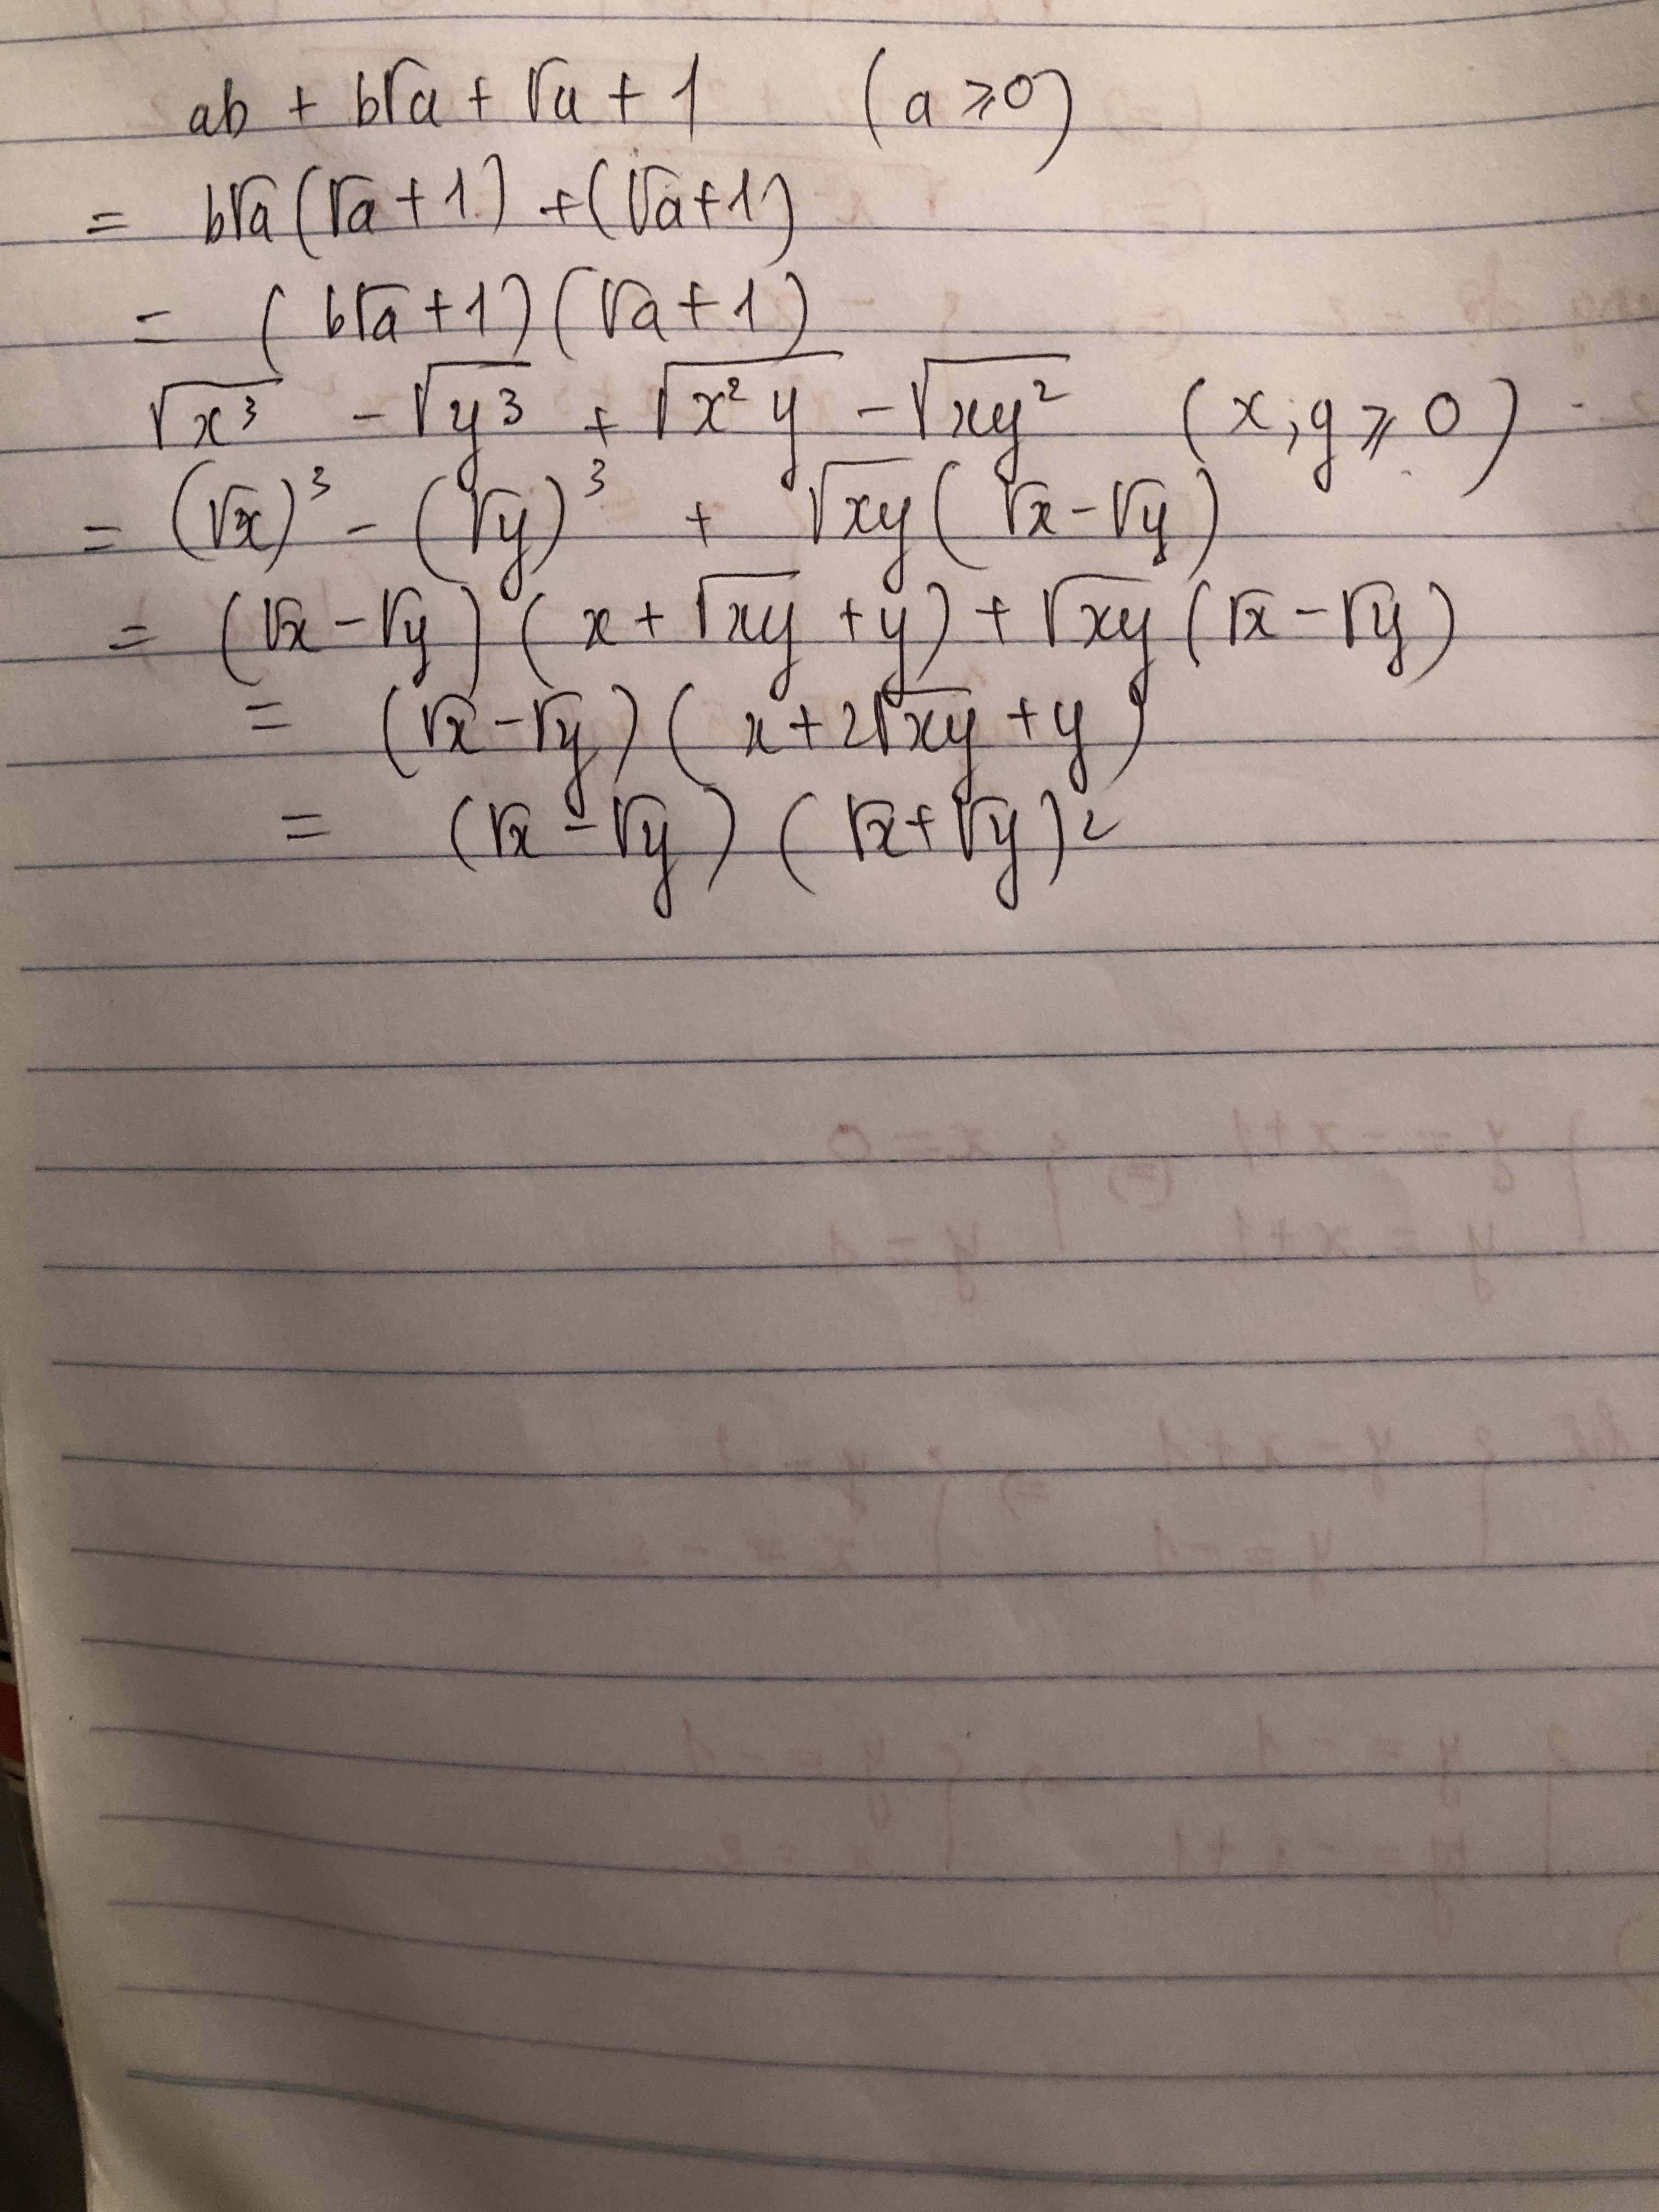 ab + b√a + √a + 1 (a ⩾ 0)
= b√a (√a + 1) + (√a + 1)
= (b√a + 1) (√a + 1)
√x³ - √y³ + √x²y - √xy² (x; y ⩾ 0)
= (√x)³ - (√y)³ + √xy (√x - √y)
= (√x - √y) (x + √xy + y) + √xy (√x - √y)
= (√x - √y) (x + 2√xy + y)
= (√x - √y) (√x + √y)²